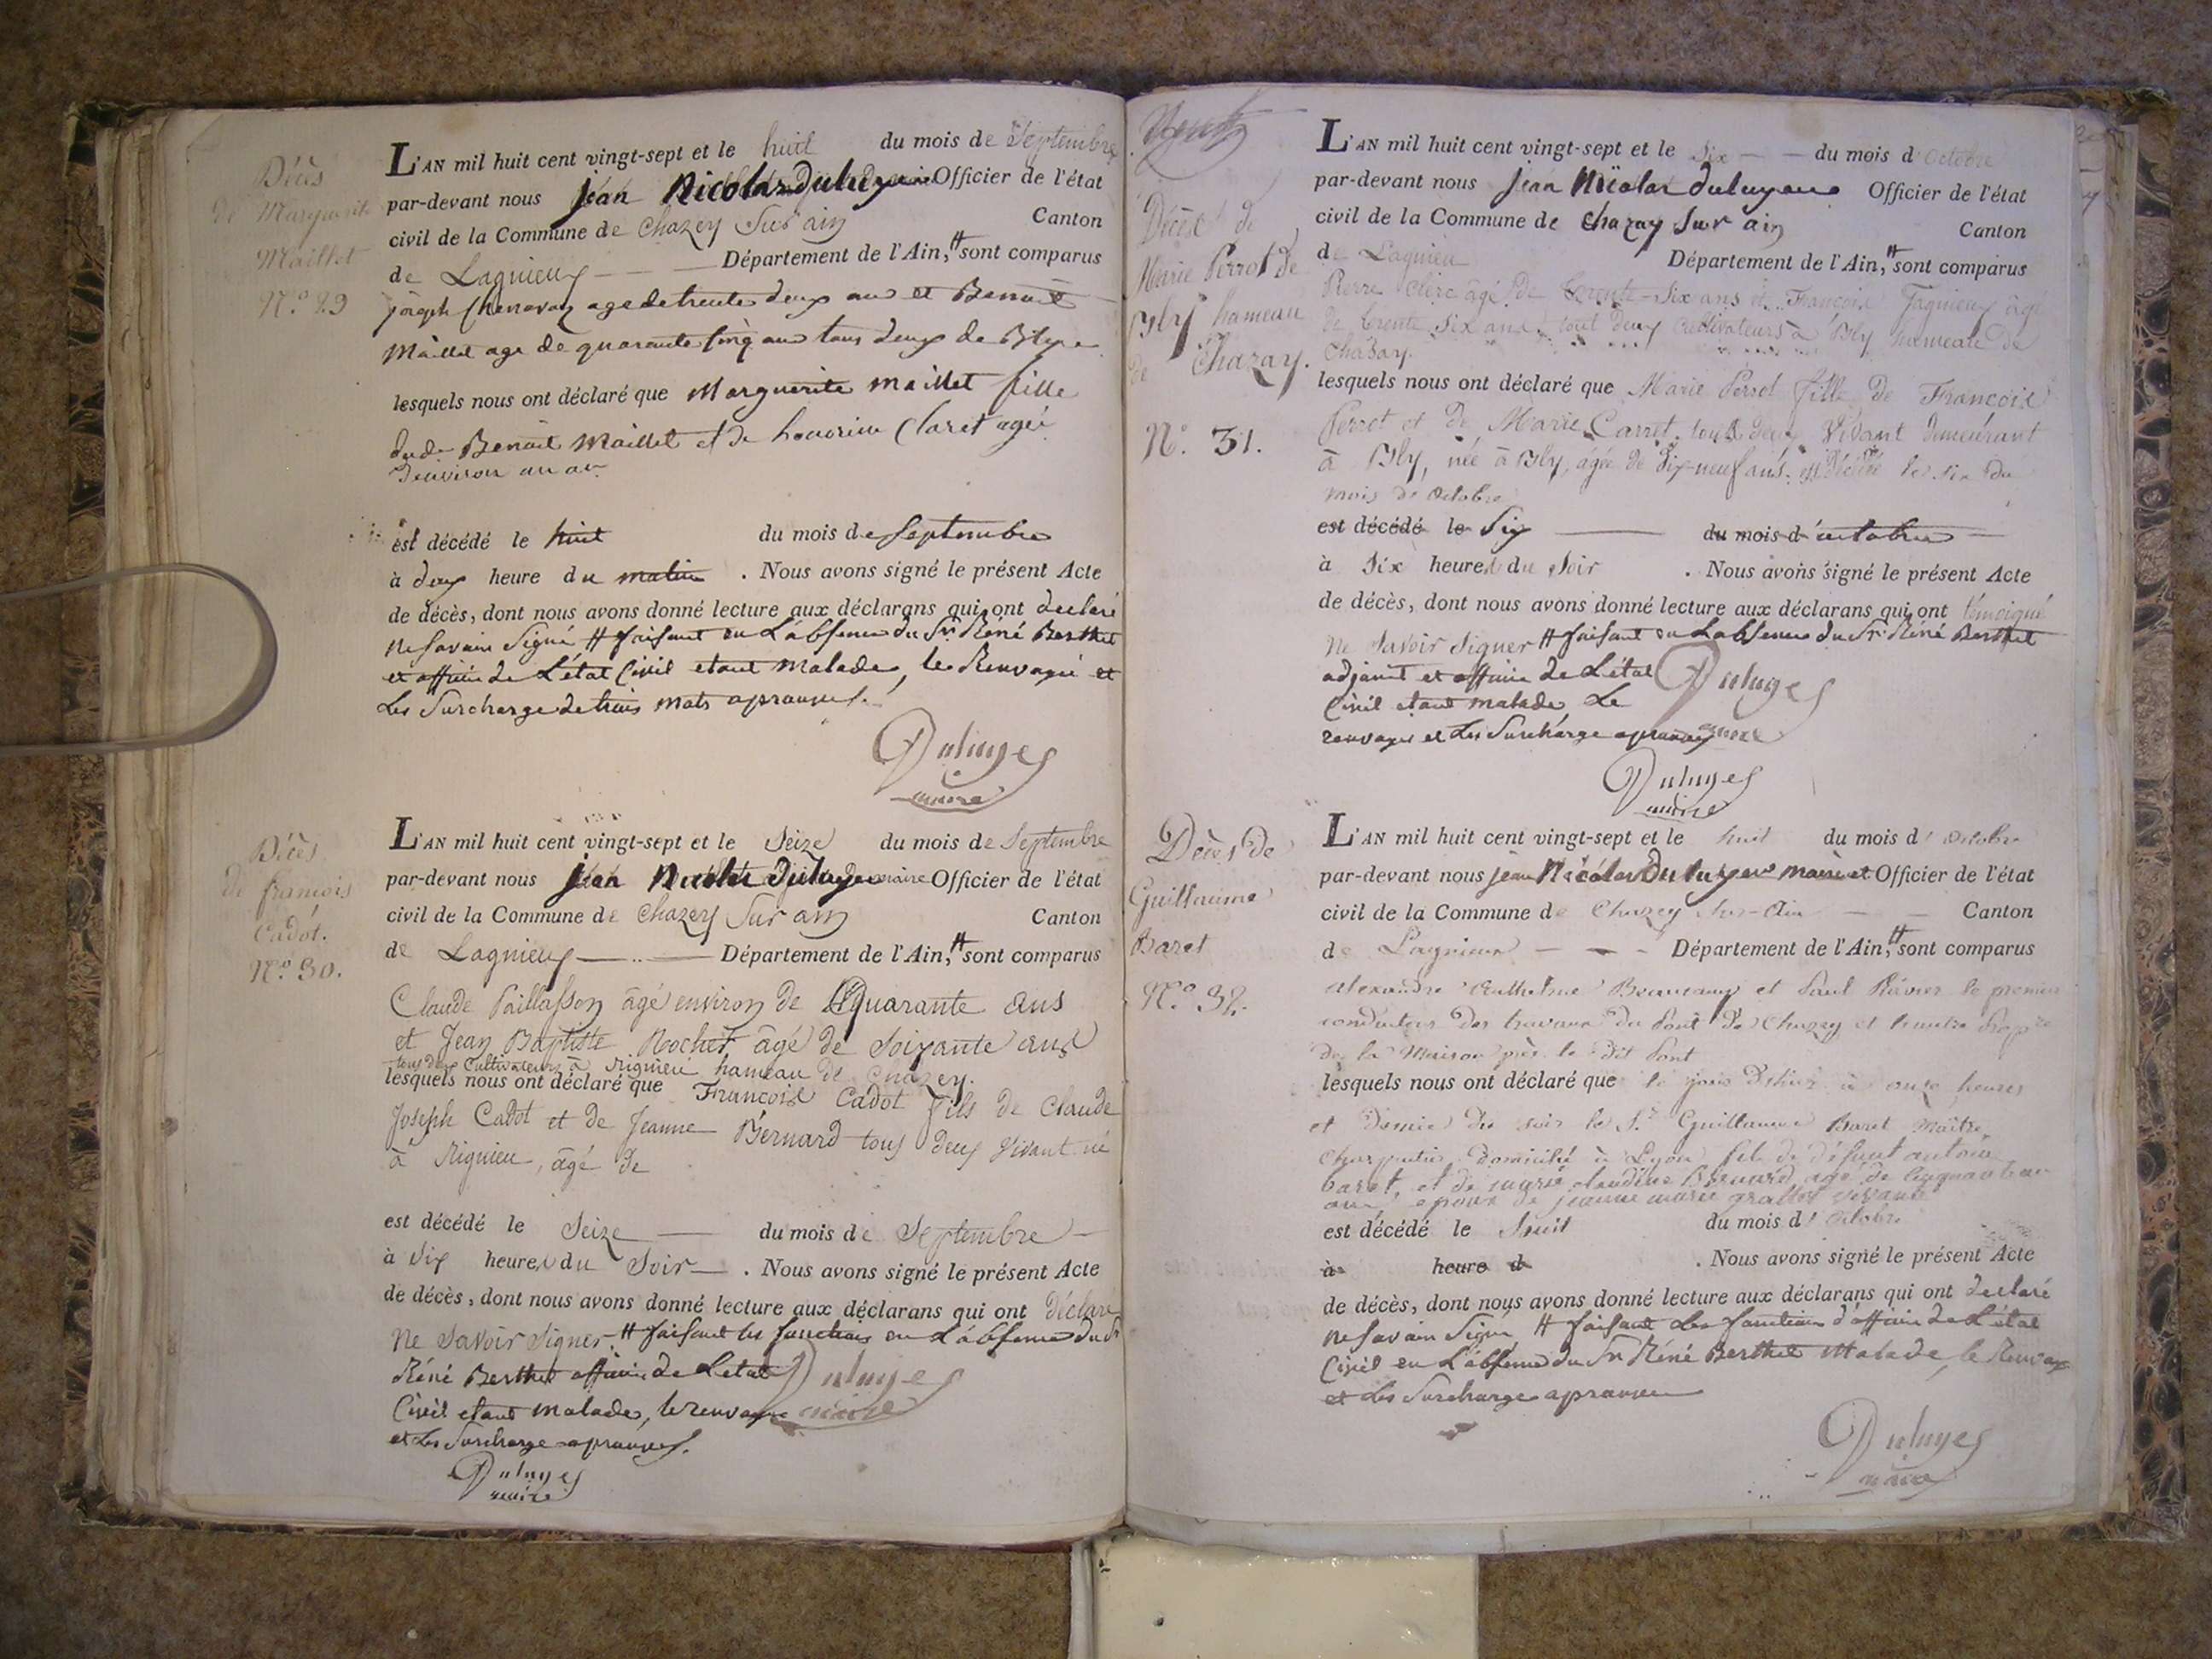 Décès
de Marguerite
Maillet
N.o 29
L'AN mil huit cent vingt-sept et le huit du mois de Septembre
par-devant nous jean Nicolas duluyes Officier de l'état
civil de la Commune de Chazey Sur ain Canton
de Lagnieux Département de l'Ain, # sont comparus
joseph Chenavaz age de trente deux ans et Benoit
Maillet age de quarante cinq ans tous deux de Blye
lesquels nous ont déclaré que Marguerite Maillet fille
dud. Benoit Maillet et de honorine Claret agée
d'environ un an
est décédé le huit du mois de Septembre
à deux heure du matin . Nous avons signé le présent Acte
de décès, dont nous avons donné lecture aux déclarans qui ont declaré
ne savoir Signé # faisant en L'absence du Sr. Réné Berthet
et officié de L'état Civil etant malade, le Renvoyé et
Les Surcharge de trois mots aprouvés.
Duluyes
maire
Décès
de francois
Cadot.
N.o 30.
L'AN mil huit cent vingt-sept et le Seize du mois de Septembre
par-devant nous jean Nicolas Duluyes maire Officier de l'état
civil de la Commune de Chazey Sur ain Canton
de Lagnieux Département de l'Ain, # sont comparus
Claude Paillasson âgé environ de Quarante ans
et Jean Baptiste Rochet âgé de Soixante ans
tous deux Cultivateurs à Rignieu hameau de Chazey.
lesquels nous ont déclaré que Francois Cadot fils de Claude
Joseph Cadot et de Jeanne Bernard tous deux Vivant né
à Rignieu, âgé de
est décédé le Seize du mois de Septembre
à Six heures du Soir . Nous avons signé le présent Acte
de décès, dont nous avons donné lecture aux déclarans qui ont Déclaré
Ne Savoir Signer # faisant les fonctions en L'absence du Sr
Réné Berthet officié de L'etat Duluyes
Civil etant malade, le renvoyé maire
et Les Surcharge aprouvés.
Duluyes
maire
Décès de
Marie Perrot de
Bly hameau
de Chazay.
N.o 31.
L'AN mil huit cent vingt-sept et le Six du mois d'Octobre
par-devant nous jean Nicolas duluyes Officier de l'état
civil de la Commune de Chazay Sur ain Canton
de Lagnieu Département de l'Ain, # sont comparus
Pierre Clerc âgé de trente-Six ans et François Fagnieux âgé
de trente Six ans, tout deux Cultivateurs à Bly hameau de
Chazay.
lesquels nous ont déclaré que Marie Perrot fille de François
Perrot et de Marie Carret, tous deux Vivant demeurant
à Bly, née à Bly, âgée de dix-neuf ans. est décédé le six du
mois de Octobre
est décédé le Six du mois d'octobre
à Six heures du Soir . Nous avons signé le présent Acte
de décès, dont nous avons donné lecture aux déclarans qui ont témoigné
ne Savoir Signer # faisant en Labsence du Sr. Réné Berthet
adjoint et officié de L'état Duluyes
Civil etant malade Le
renvoyé et Les Surcharge aprouvé maire
Duluyes
maire
Décès de
Guillaume
Baret
N.o 32.
L'AN mil huit cent vingt-sept et le huit du mois d'octobre
par-devant nous jean Nicolas Duluyes maire et Officier de l'état
civil de la Commune de Chazey Sur-Ain Canton
de Lagnieux Département de l'Ain, # sont comparus
alexandre Anthelme et Paul Ravier le premier
conducteur des travaux du Pont de Chazey et l'autre
de la Maison près le dit Pont
lesquels nous ont déclaré que le jour d'hier à onze heures
et demie du soir le S.r Guillaume Baret Maître
Charpentier domicilié à Lyon fils de défunt antoine
baret, et de marie claudine Bernard, agé de cinquante
ans, epoux de jeanne marie vivante
est décédé le huit du mois d'Octobre
à heure d . Nous avons signé le présent Acte
de décès, dont nous avons donné lecture aux déclarans qui ont declaré
ne savoir Signé # faisant Les fonctions d'officié de L'état
Civil en L'absence du Sr Réné Berthet Malade, le Renvoye
et Les Surcharge aprouvé
Duluyes
maire